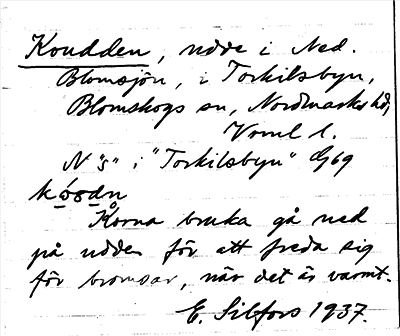 Koudden, udde i Ned.
Blomsjön, i Torkilsbyn,
Blomskogs sn, Nordmarks hd,
Vrml l.
N "s" i "Torkilsbyn" Gg 69
Korna bruka gå ned
på udden för att freda sig
för bromsar, när det är varmt.
E. Silfors 1937.